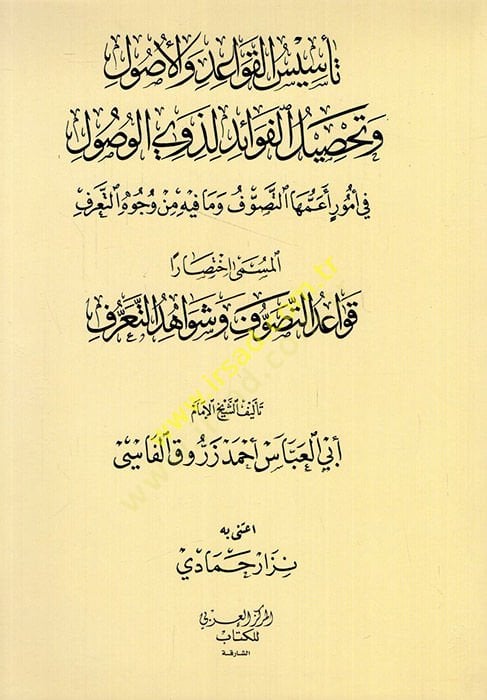 تَأْسِيسُ القَوَاعِدِ وَالأُصُولِ
وَتَحْصِيلُ الفَوَائِدِ لِذَوِي الوُصُولِ
فِي أُمُورٍ أَعَمُّهَا التَّصَوُّفُ وَمَا فِيهِ مِنْ وُجُوهِ التَّعَرُّفِ
المُسَمَّى اخْتِصَارًا
قَوَاعِدُ التَّصَوُّفِ وَشَوَاهِدُ التَّعَرُّفِ
تَأْلِيفُ الشَّيْخِ الإِمَامِ
أَبِي العَبَّاسِ أَحْمَدَ زَرُّوق الفَاسِيّ
اعْتَنَى بِهِ
نِزَار حَمَّادِي
المركز العربي
للكتاب
الشارقة